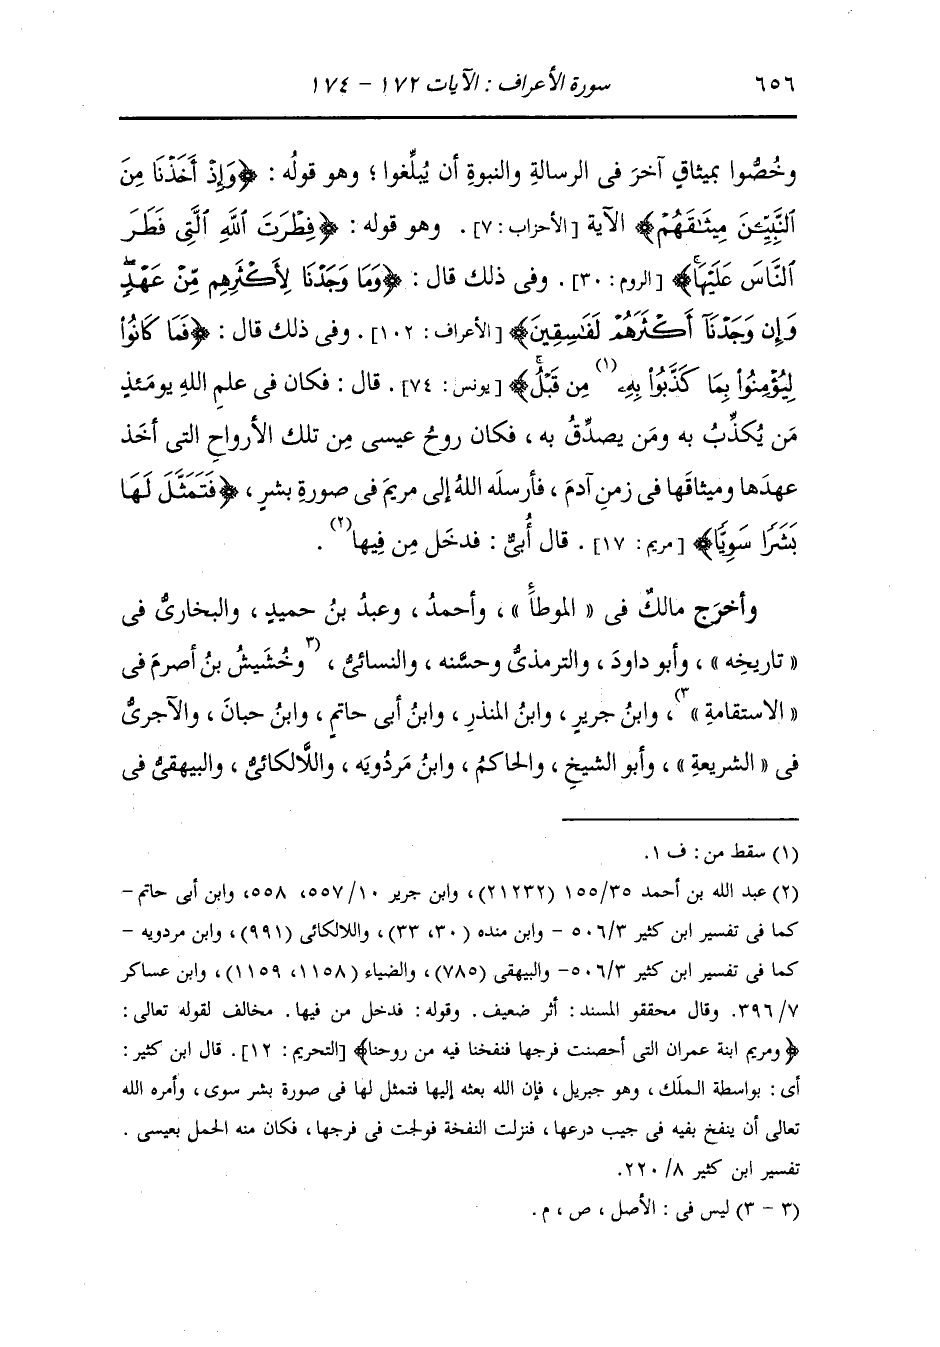 ٦٥٦ سورة الأعراف : الآيات ١٧٢ - ١٧٤
وخُصُّوا بميثاقٍ آخرَ فى الرسالةِ والنبوةِ أن يُبلِّغوا ؛ وهو قولُه : ﴿وَإِذْ أَخَذْنَا مِنَ
ٱلنَّبِيِّـۧنَ مِيثَـٰقَهُمْ﴾ الآية [الأحزاب : ٧] . وهو قوله : ﴿فِطْرَتَ ٱللَّهِ ٱلَّتِى فَطَرَ
ٱلنَّاسَ عَلَيْهَاۚ﴾ [الروم : ٣٠] . وفى ذلك قال : ﴿وَمَا وَجَدْنَا لِأَكْثَرِهِم مِّنْ عَهْدٍۖ
وَإِن وَجَدْنَآ أَكْثَرَهُمْ لَفَـٰسِقِينَ﴾ [الأعراف : ١٠٢] . وفى ذلك قال : ﴿فَمَا كَانُوا۟
لِيُؤْمِنُوا۟ بِمَا كَذَّبُوا۟ بِهِۦ(١) مِن قَبْلُۚ﴾ [يونس : ٧٤] . قال : فكان فى علمِ اللهِ يومَئذٍ
مَن يُكذِّبُ به ومَن يصدِّقُ به ، فكان روحُ عيسى مِن تلك الأرواحِ التى أخَذ
عهدَها وميثاقَها فى زمنِ آدمَ ، فأرسلَه اللهُ إلى مريمَ فى صورةِ بشرٍ ، ﴿فَتَمَثَّلَ لَهَا
بَشَرًا سَوِيًّا﴾ [مريم : ١٧] . قال أُبىٌّ : فدخَل مِن فِيها(٢) .
وأخرَج مالكٌ فى « الموطأَ » ، وأحمدُ ، وعبدُ بنُ حميدٍ ، والبخارىُّ فى
« تاريخِه » ، وأبو داودَ ، والترمذىُّ وحسَّنه ، والنسائىُّ ، (٣وخُشَيشُ بنُ أصرمَ فى
« الاستقامةِ »٣) ، وابنُ جريرٍ ، وابنُ المنذرِ ، وابنُ أبى حاتمٍ ، وابنُ حبانَ ، والآجرىُّ
فى « الشريعةِ » ، وأبو الشيخِ ، والحاكمُ ، وابنُ مَردُويَه ، واللَّالكائىُّ ، والبيهقىُّ فى
(١) سقط من : ف ١.
(٢) عبد الله بن أحمد ١٥٥/٣٥ (٢١٢٣٢) ، وابن جرير ١٠/ ٥٥٧، ٥٥٨، وابن أبى حاتم -
كما فى تفسير ابن كثير ٥٠٦/٣ - وابن منده (٣٠، ٣٣) ، واللالكائى (٩٩١) ، وابن مردويه -
كما فى تفسير ابن كثير ٥٠٦/٣- والبيهقى (٧٨٥) ، والضياء (١١٥٨، ١١٥٩) ، وابن عساكر
٧/ ٣٩٦. وقال محققو المسند : أثر ضعيف . وقوله : فدخل من فيها . مخالف لقوله تعالى :
﴿ومريم ابنة عمران التى أحصنت فرجها فنفخنا فيه من روحنا﴾ [التحريم : ١٢] . قال ابن كثير :
أى : بواسطة الملَك ، وهو جبريل ، فإن الله بعثه إليها فتمثل لها فى صورة بشر سوى ، وأمره الله
تعالى أن ينفخ بفيه فى جيب درعها ، فنزلت النفخة فولجت فى فرجها ، فكان منه الحمل بعيسى .
تفسير ابن كثير ٨/ ٢٢٠.
(٣ - ٣) ليس فى : الأصل ، ص ، م .